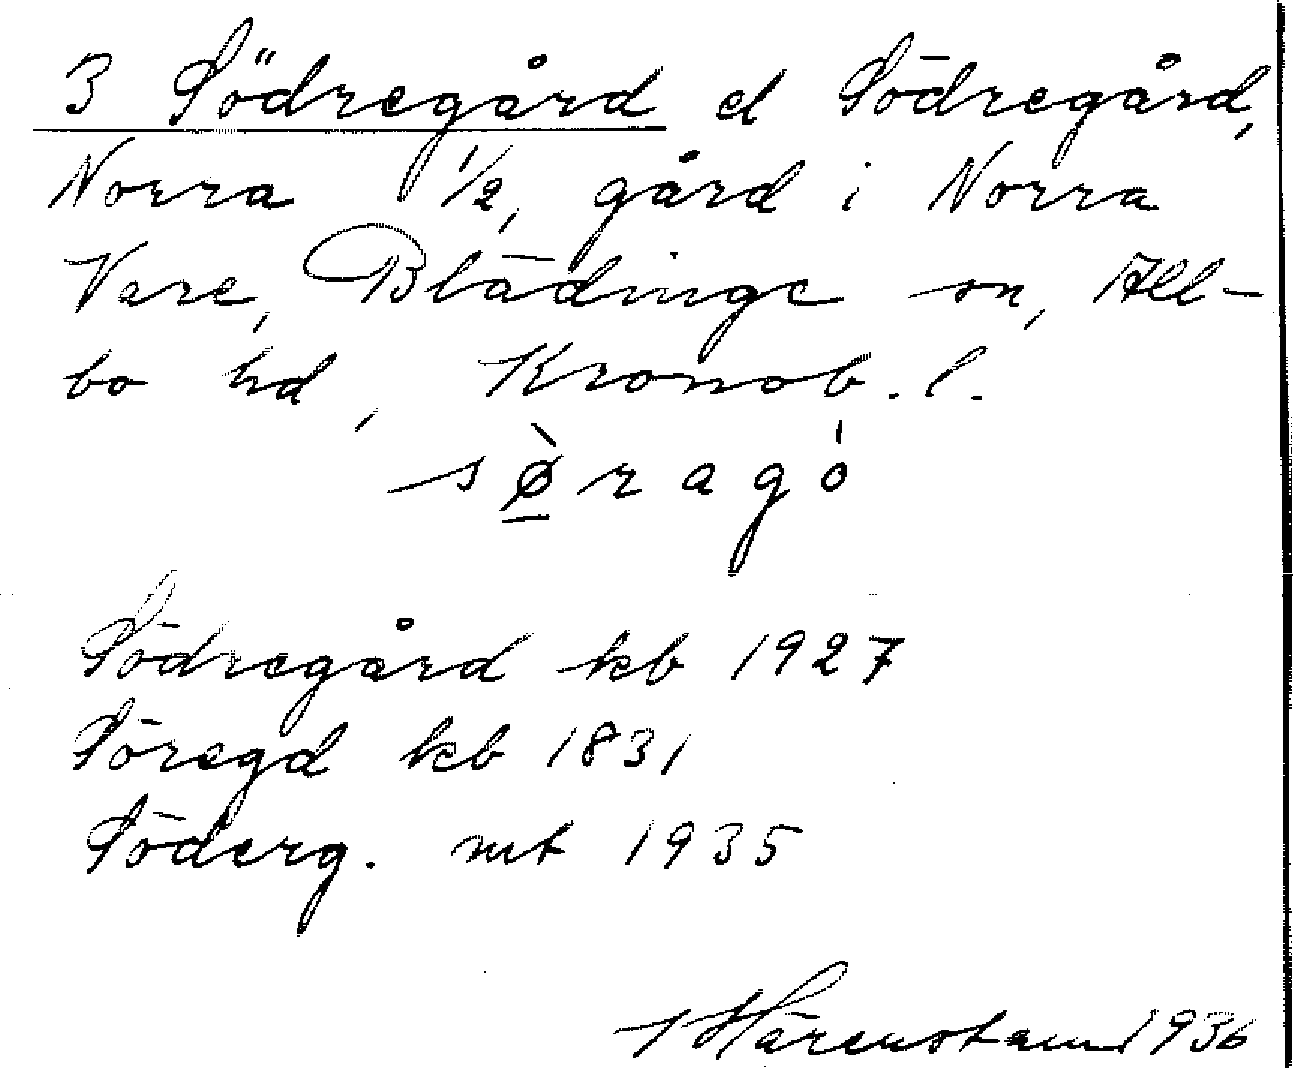 3 Södregård el Södregård,
Norra 1/2, gård i Norra
Vare, Blädinge sn, All-
bo hd, Kronob. l.
sø̀ragó
Södregård kb 1927
Söregd kb 1831
Söderg. mt 1935
Härenstam 1936